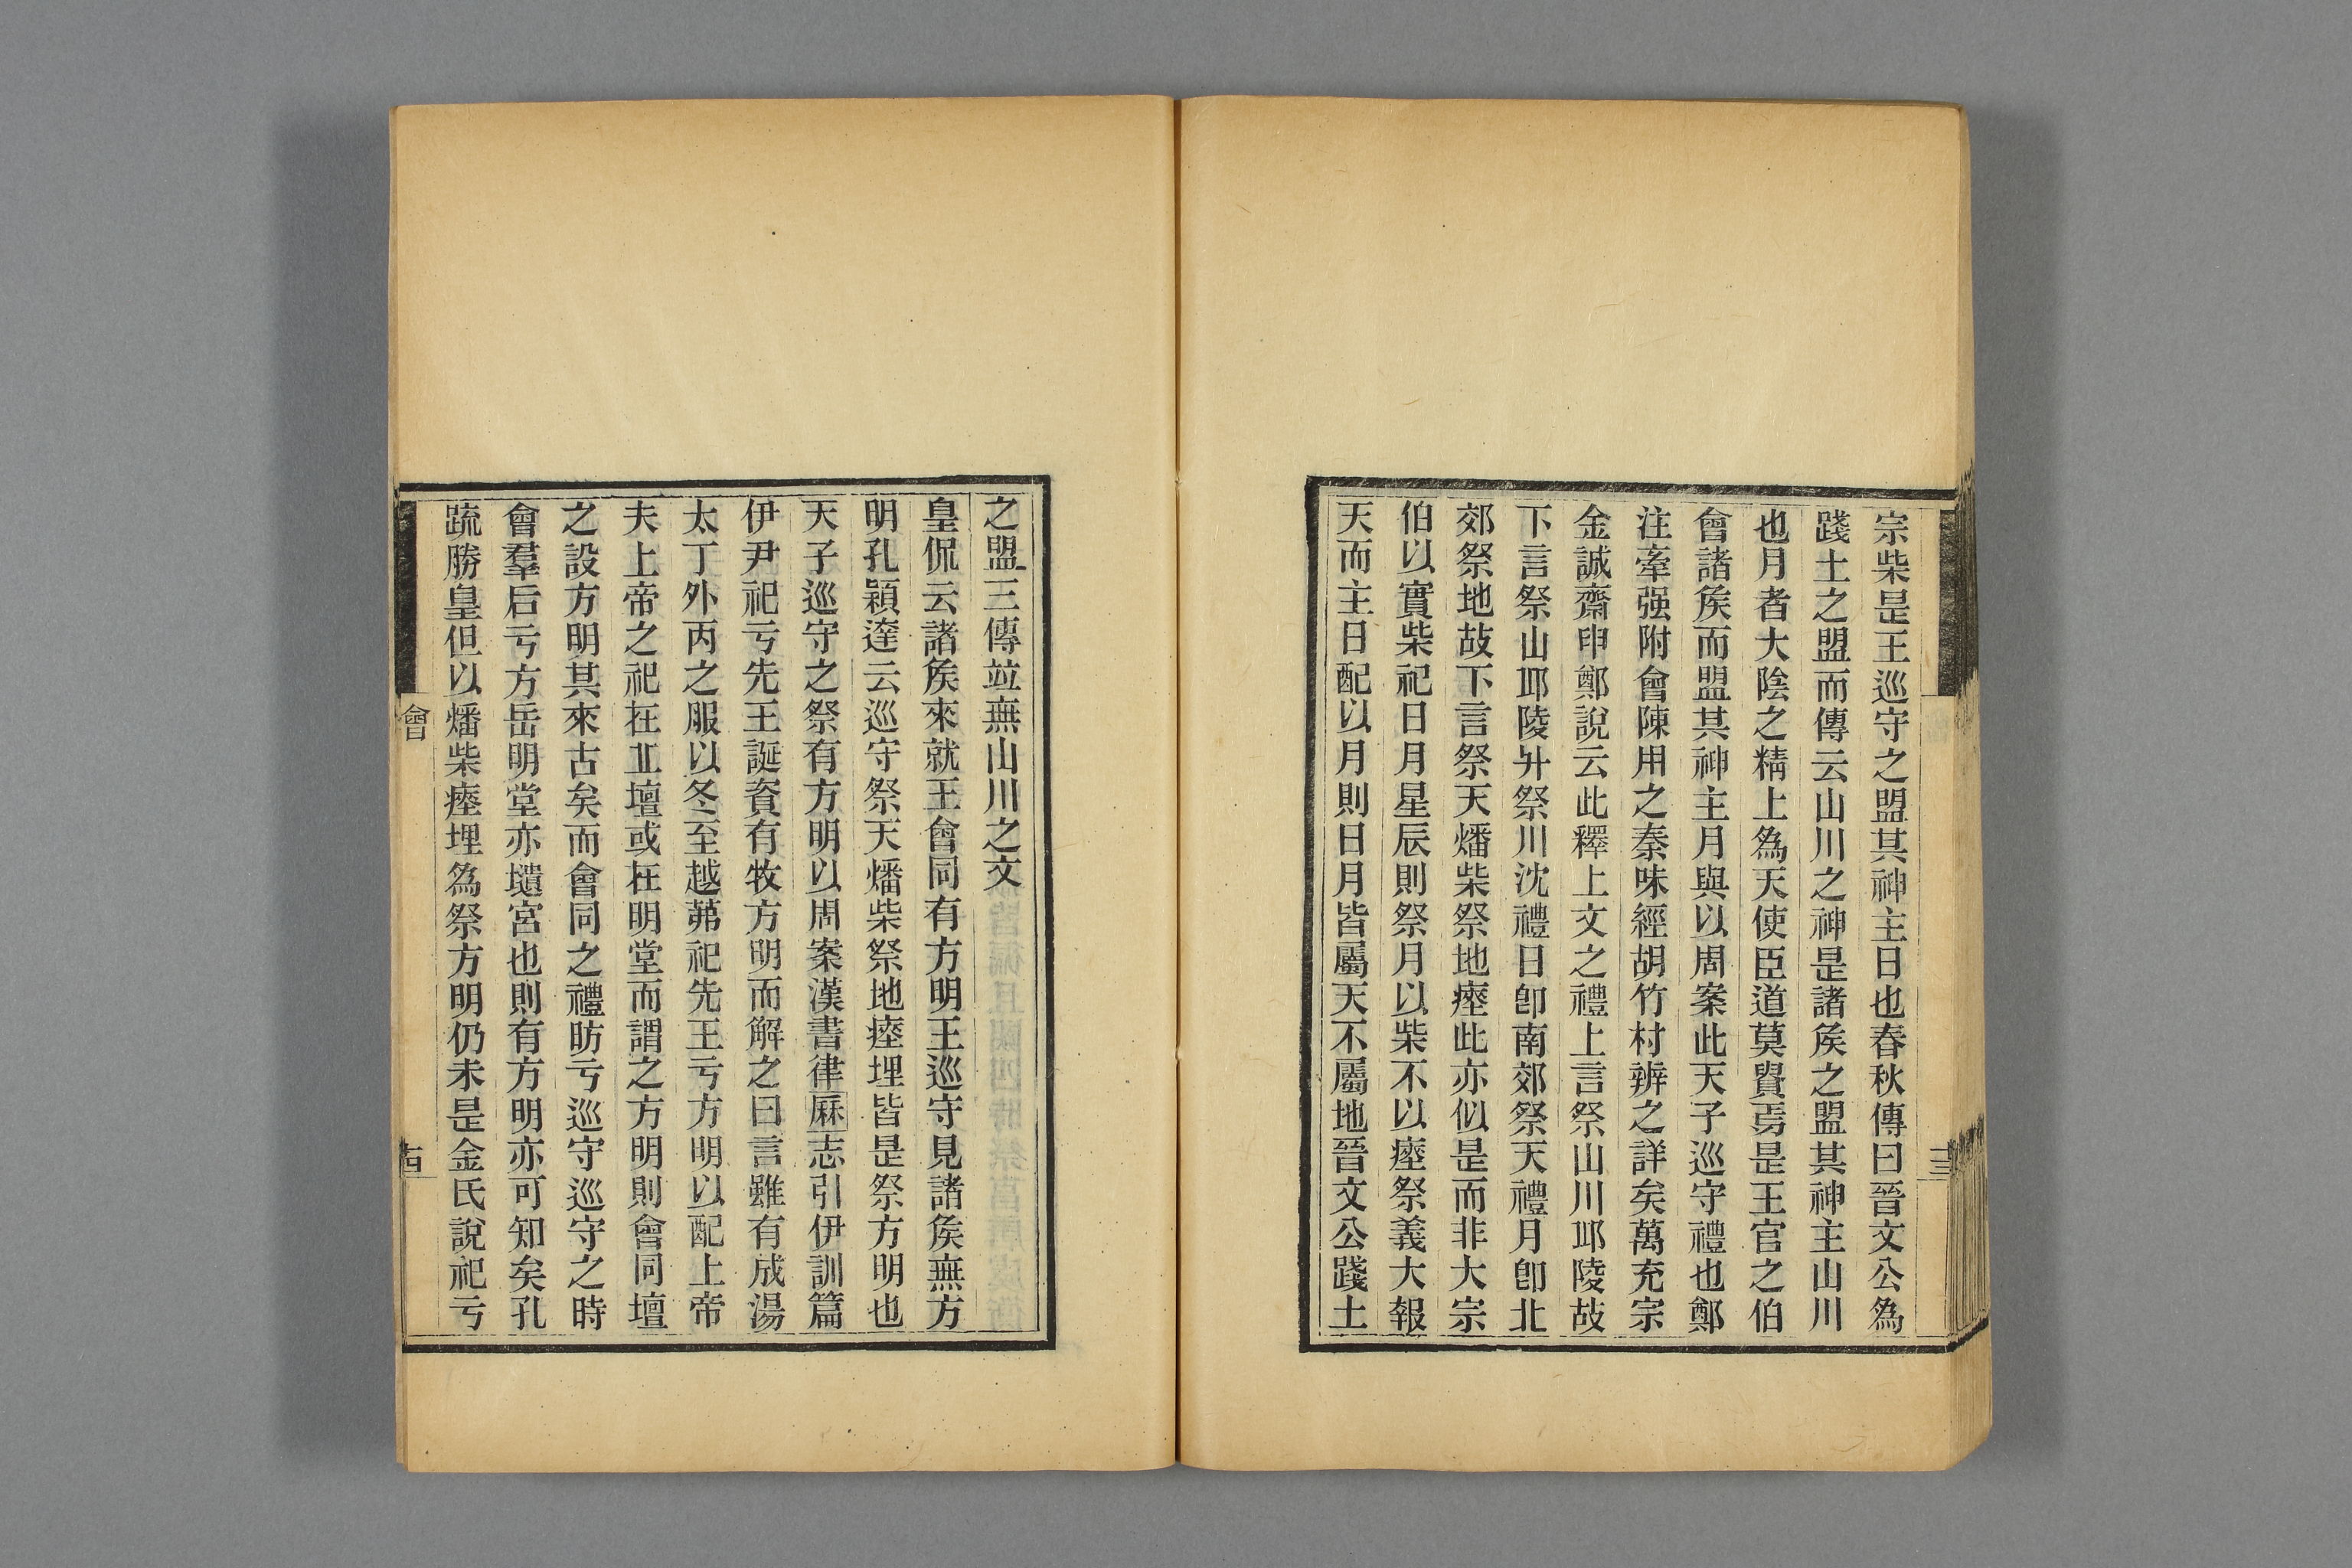 宗柴是王巡守之盟其神主日也春秋傳曰晉文公為
踐土之盟而傳云山川之神是諸矦之盟其神主山川
也月者大陰之精上為天使臣道莫貴焉是王官之伯
會諸矦而盟其神主月與以周案此天子巡守禮也鄭
注牽强附會陳用之秦味經胡竹村辨之詳矣萬充宗
金誠齋申鄭說云此釋上文之禮上言祭山川丘陵故
下言祭山丘陵升祭川沈禮日卽南郊祭天禮月卽北
郊祭地故下言祭天燔柴祭地瘞此亦似是而非大宗
伯以實柴祀日月星辰則祭月以柴不以瘞祭義大報
天而主日配以月則日月皆屬天不屬地晉文公踐土
十三
之盟三傳竝無山川之文
皇侃云諸矦來就王會同有方明王巡守見諸矦無方
明孔穎達云巡守祭天燔柴祭地瘞埋皆是祭方明也
天子巡守之祭有方明以周案漢書律厤志引伊訓篇
伊尹祀亏先王誕資有牧方明而解之曰言雖有成湯
太丁外丙之服以冬至越茀祀先王亏方明以配上帝
夫上帝之祀在丠壇或在明堂而謂之方明則會同壇
之設方明其來古矣而會同之禮昉亏巡守巡守之時
會羣后亏方岳明堂亦壝宮也則有方明亦可知矣孔
疏勝皇但以燔柴瘞埋為祭方明仍未是金氏說祀亏
會
十四